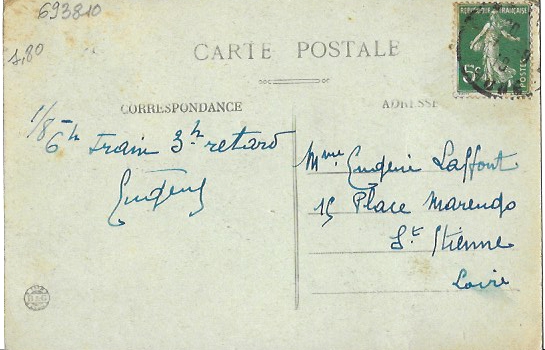 693810
1,80
CARTE POSTALE
CORRESPONDANCE
1/8 6h Train 3h retard
Eugène
ADRESSE
Mme Eugène Laffont
15 Place Marengo
St Etienne
Loire
RÉPUBLIQUE FRANÇAISE
5c
POSTES
B&G